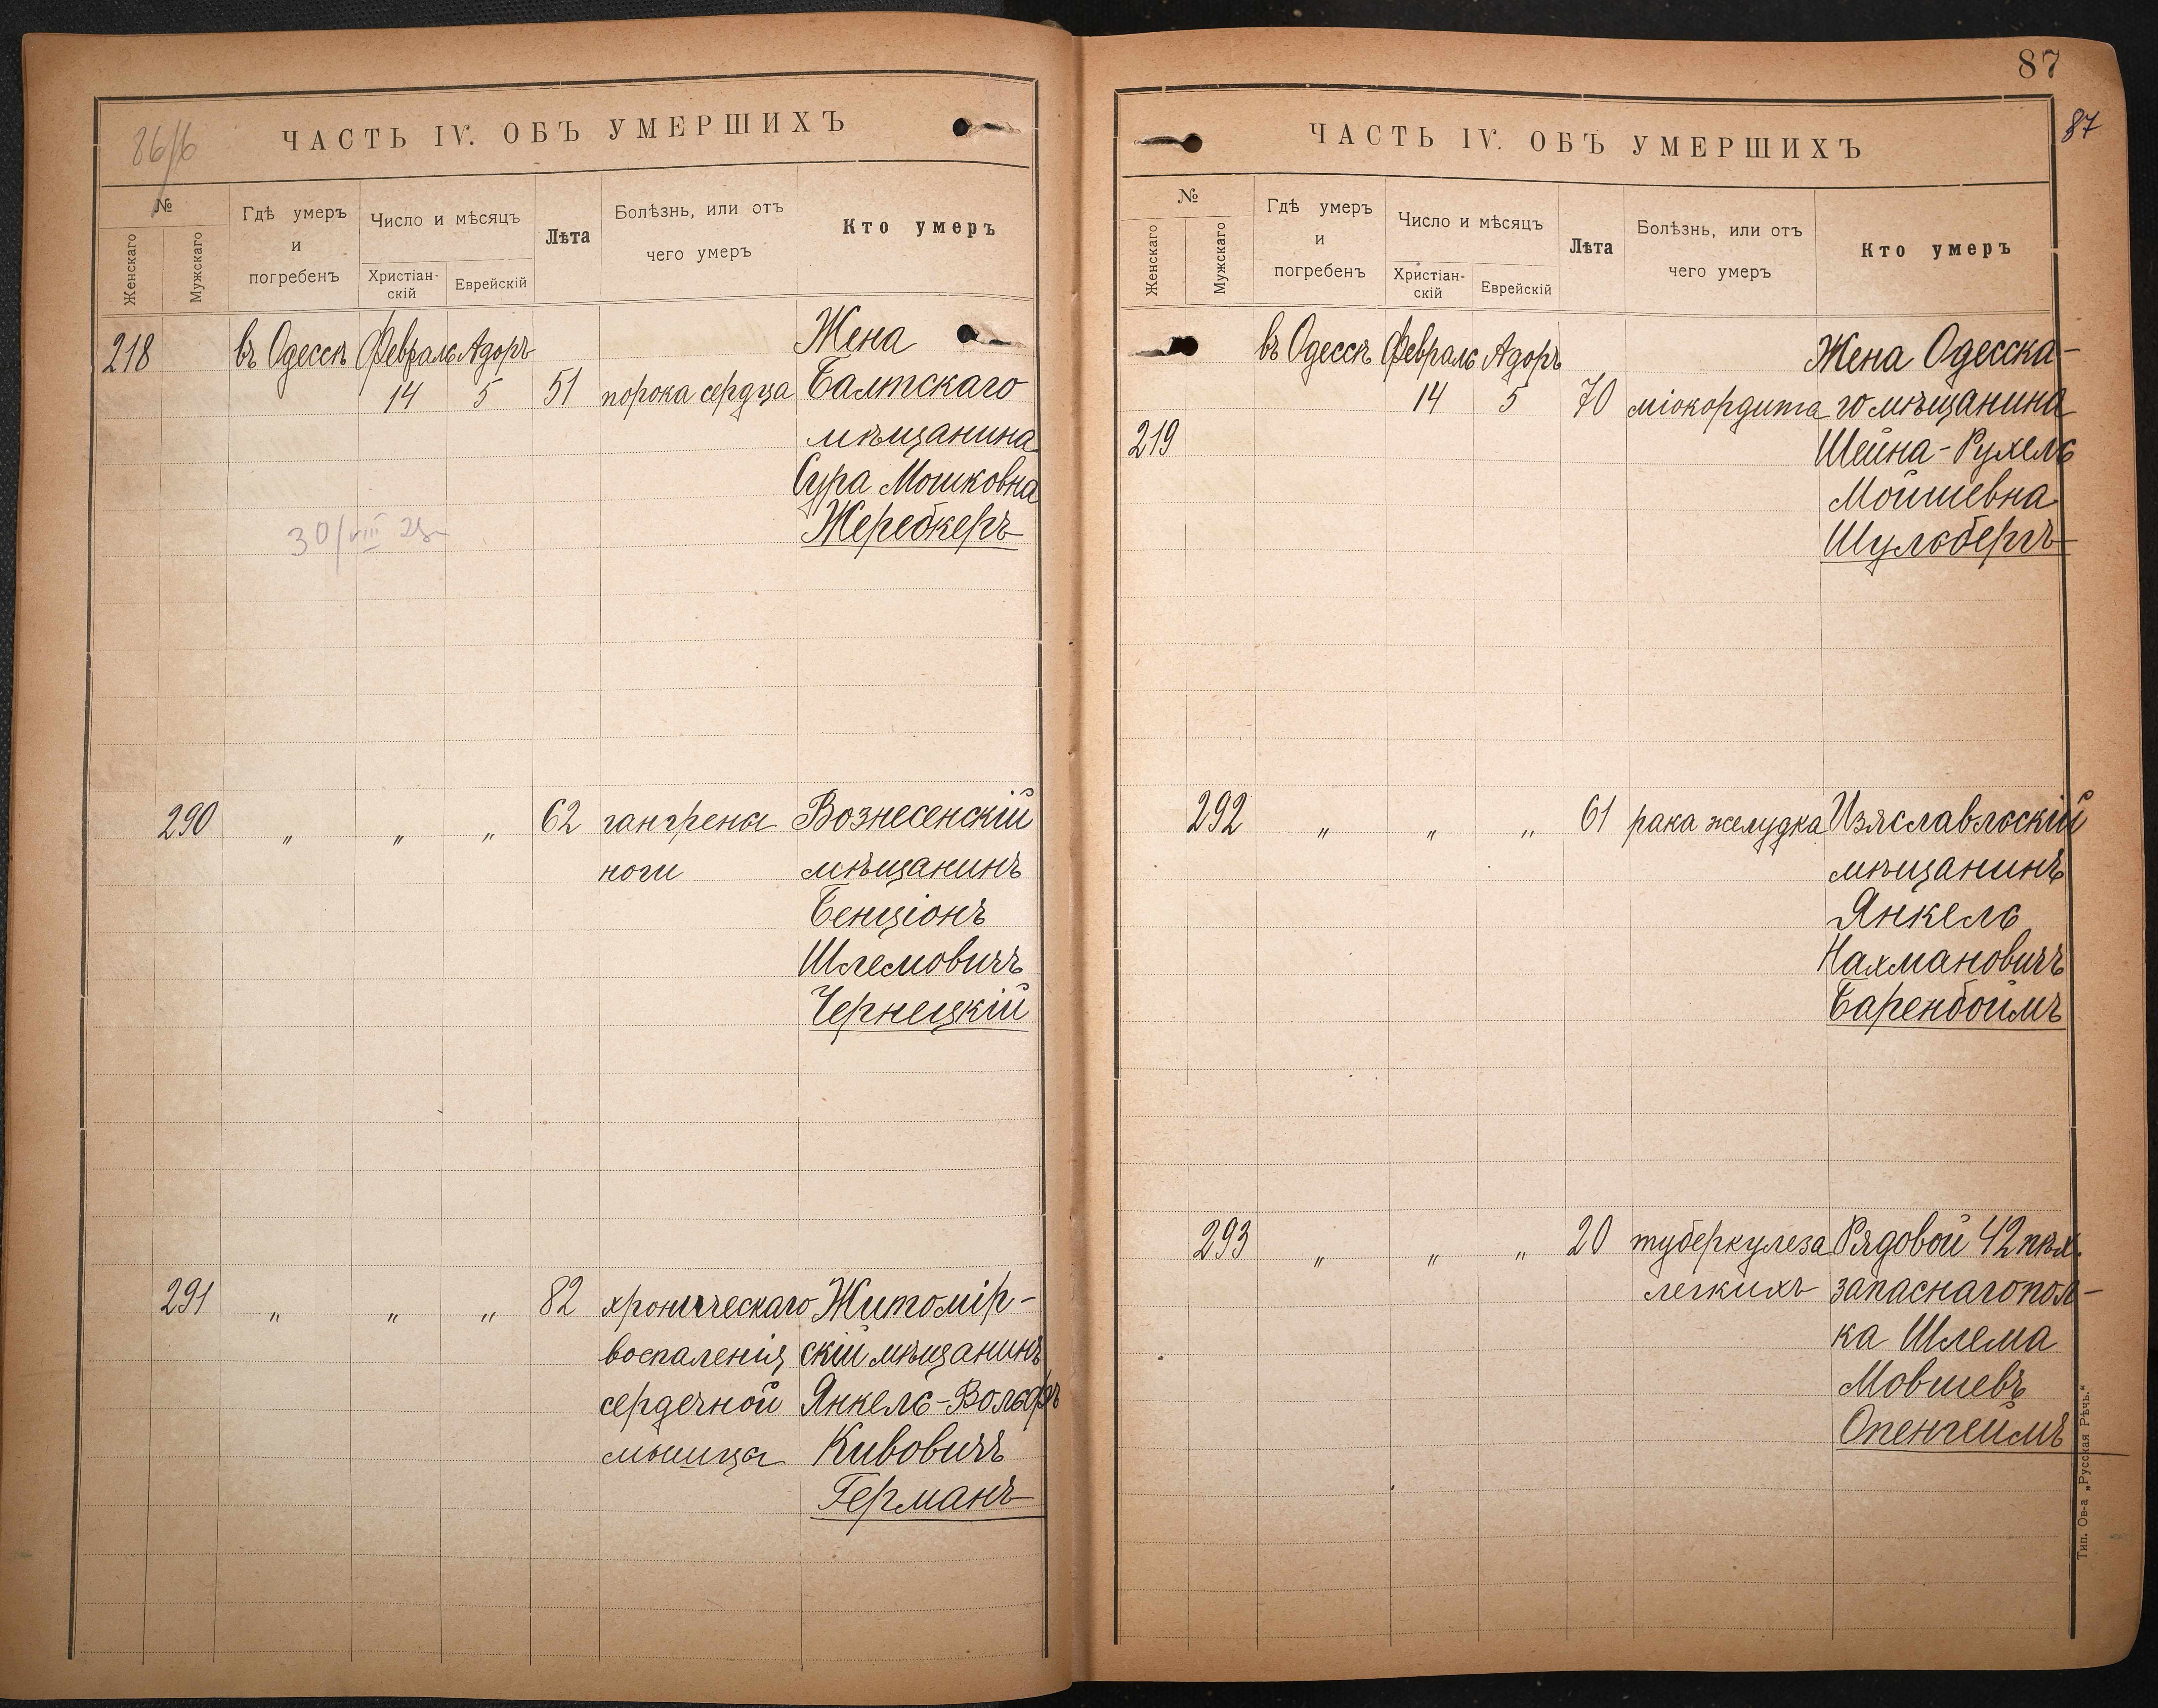 86/6
ЧАСТЬ IV. ОБЪ УМЕРШИХЪ
№
Женскаго
Мужскаго
Гдѣ умеръ
и
погребенъ
Число и мѣсяцъ
Христіан-
скій
Еврейскій
Лѣта
Болѣзнь, или отъ
чего умеръ
Кто умеръ
218 въ Одессѣ Февраль Адоръ Жена
14 5 51 порока сердца Балтскаго
мѣщанина
Сура Мошковна
Жеребкеръ
30/VIII
290 " " " 62 гангрена Вознесенскій
ноги мѣщанинъ
Бенціонъ
Шлемовичъ
Чернецкій
291 " " " 82 хроническаго Житомір-
воспаленія скій мѣщанинъ
сердечной Янкель-Вольфъ
мышца Кивовичъ
Германъ
87
87
ЧАСТЬ IV. ОБЪ УМЕРШИХЪ
№
Женскаго
Мужскаго
Гдѣ умеръ
и
погребенъ
Число и мѣсяцъ
Христіан-
скій
Еврейскій
Лѣта
Болѣзнь, или отъ
чего умеръ
Кто умеръ
въ Одессѣ Февраль Адоръ Жена Одесска-
14 5 70 міокордита го мѣщанина
219 Шейна-Рухель
Мойшевна
Шульбергъ
292 " " " 61 рака желудка Изяславльскій
мѣщанинъ
Янкель
Нахмановичъ
Баренбоймъ
293 " " " 20 туберкулеза Рядовой 42 пѣх.
легкихъ запаснаго пол-
ка Шлема
Мовшевъ
Опенгеймъ
Тип. Ов-а „Русская Рѣчь."